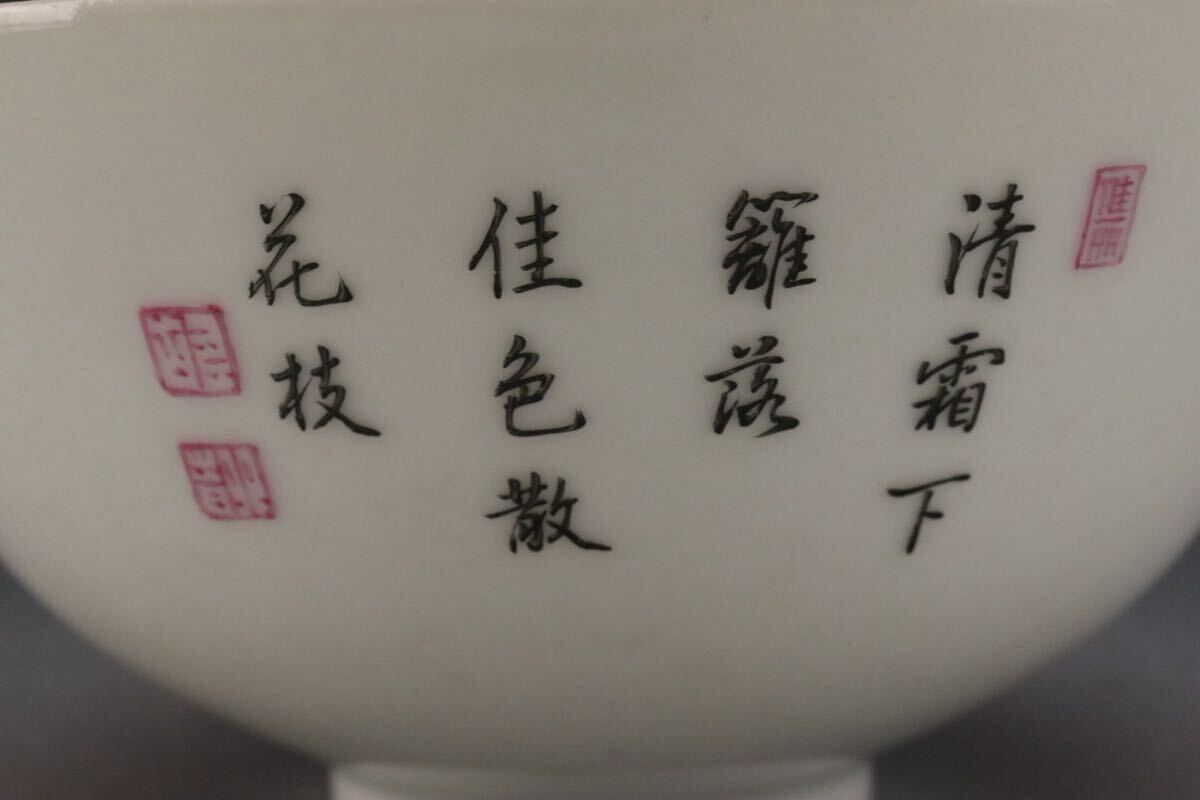 清霜下
籬落
佳色散
花枝